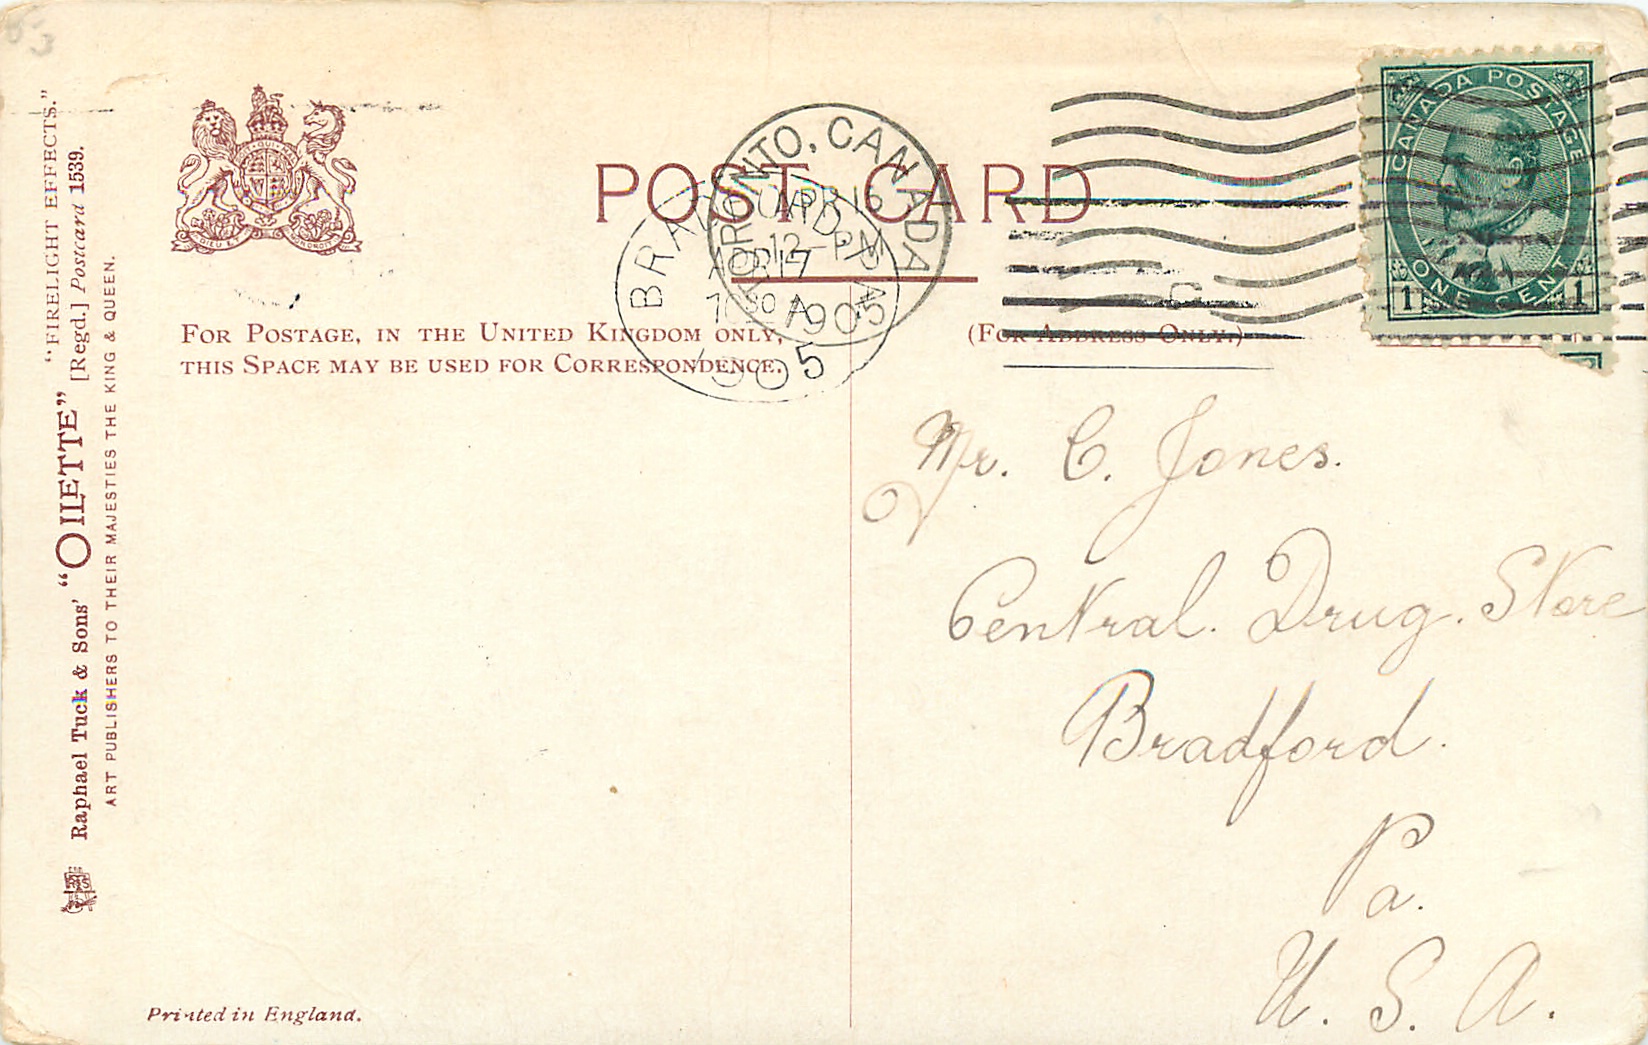 "FIRELIGHT EFFECTS."
Raphael Tuck & Sons' "OILETTE" [Regd.] Postcard 1539.
ART PUBLISHERS TO THEIR MAJESTIES THE KING & QUEEN.
POST CARD
FOR POSTAGE, IN THE UNITED KINGDOM ONLY,
THIS SPACE MAY BE USED FOR CORRESPONDENCE.
(FOR ADDRESS ONLY.)
TORONTO, CANADA
APR 16
12-PM
1905
BRADFORD, PA
APR 17
7 30 A
1905
CANADA POSTAGE
ONE CENT
1 1
DIEU ET MON DROIT
Mr. C. Jones.
Central. Drug. Store
Bradford.
Pa.
U. S. A.
Printed in England.